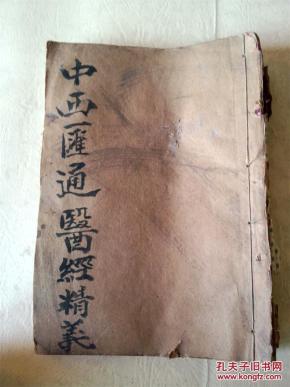 中西匯通醫經精義
孔夫子旧书网